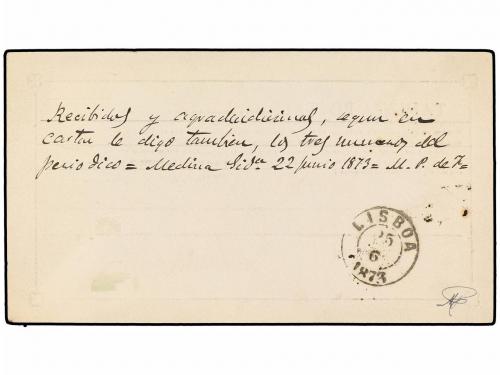 Recibidos y agradecidísimos, segun en
carta le digo tambien, los tres numeros del
periodico = Medina Sidª 22 junio 1873 = M. P. de F=
LISBOA
25
6
1873